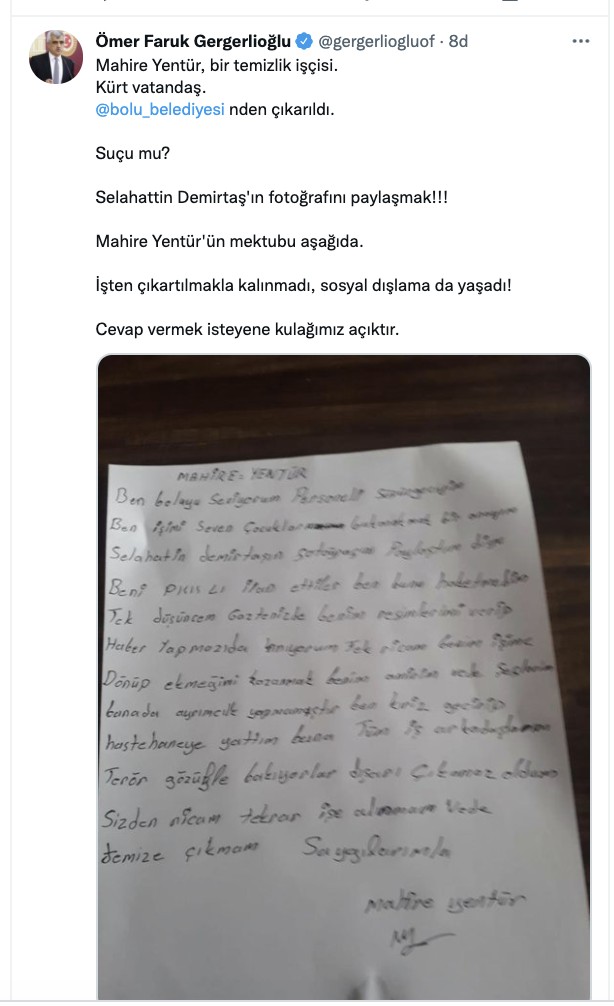 Ömer Faruk Gergerlioğlu @gergerliogluof · 8d
Mahire Yentür, bir temizlik işçisi.
Kürt vatandaş.
@bolu_belediyesi nden çıkarıldı.
Suçu mu?
Selahattin Demirtaş'ın fotoğrafını paylaşmak!!!
Mahire Yentür'ün mektubu aşağıda.
İşten çıkartılmakla kalınmadı, sosyal dışlama da yaşadı!
Cevap vermek isteyene kulağımız açıktır.
MAHİRE: YENTÜR
Ben boluyu Seviyorum Personeli
Ben işimi Seven Çocuklar bir
Selahatin demirtaşın Paylaştım diye
Beni ilan ettiler ben bunu
Tek düşüncem benim resimlerimi verip
Haber Tek ricam benim işime
Dönüp ekmeğimi kazanmak benim
banada ayrımcılık ben kriz geçirip
hastehaneye yattım bana Tüm iş arkadaşlarım
Terör gözüğle bakıyorlar dışarı Çıkamaz oldum
Sizden ricam tekrar işe alınmam vede
temize çıkmam Saygılarımla
Mahire yentür